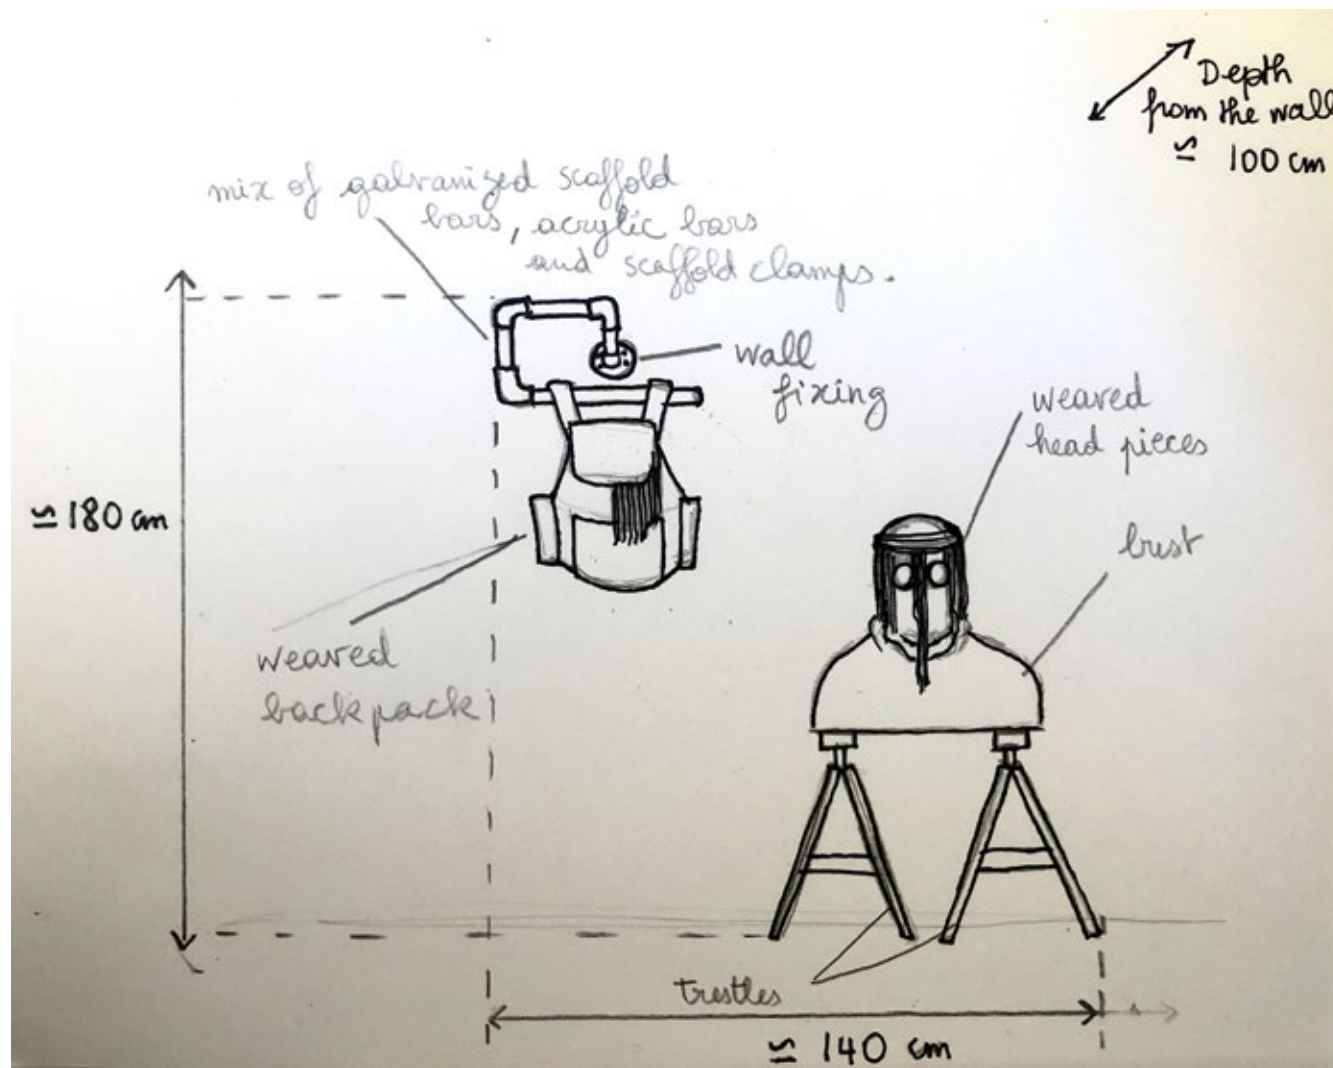 Depth
from the wall
≃ 100 cm
mix of galvanized scaffold
bars, acrylic bars
and scaffold clamps.
wall
fixing
weaved
head pieces
bust
≃ 180 cm
weaved
backpack
trestles
≃ 140 cm